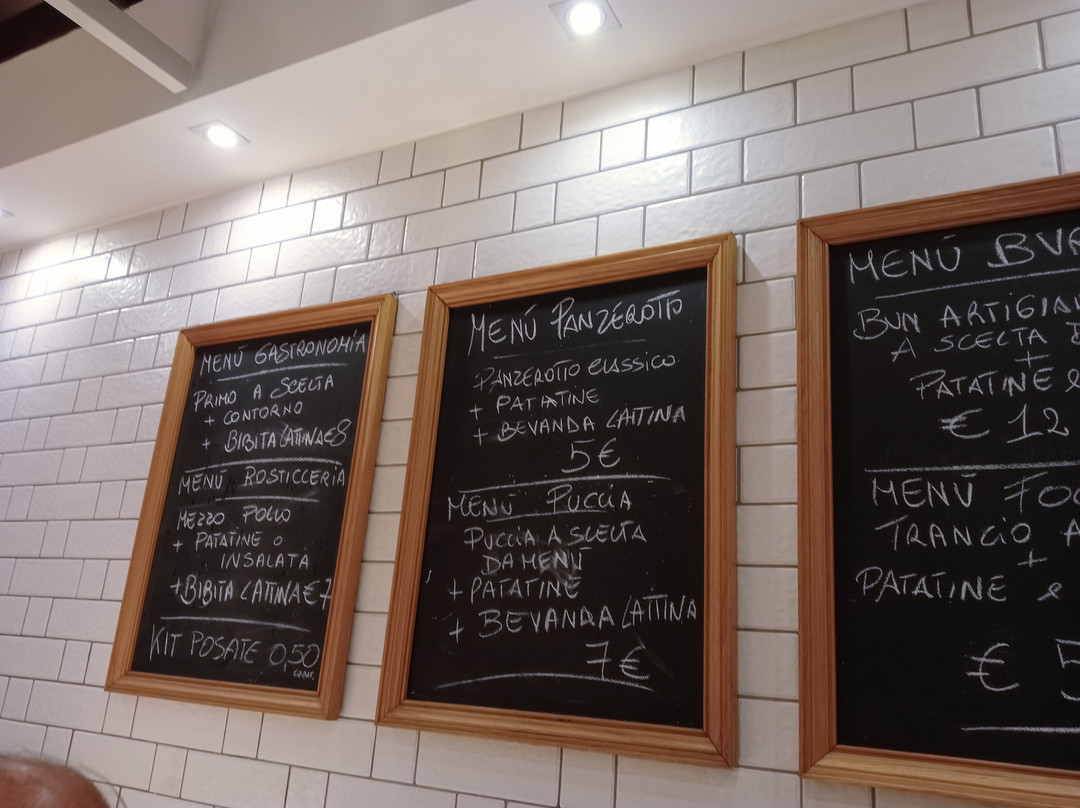 MENÚ GASTRONOMIA
PRIMO A SCELTA
+ CONTORNO
+ BIBITA LATTINA €8
MENÚ ROSTICCERIA
MEZZO POLLO
+ PATATINE O
INSALATA
+ BIBITA LATTINA €7
KIT POSATE 0,50
CENT.
MENÚ PANZEROTTO
PANZEROTTO CLASSICO
+ PATATINE
+ BEVANDA LATTINA
5€
MENÚ PUCCIA
PUCCIA A SCELTA
DA MENÚ
+ PATATINE
+ BEVANDA LATTINA
7€
MENÚ
BUN
A SCELTA
+
PATATINE e
€ 12
MENÚ
TRANCIO
+
PATATINE e
€ 5